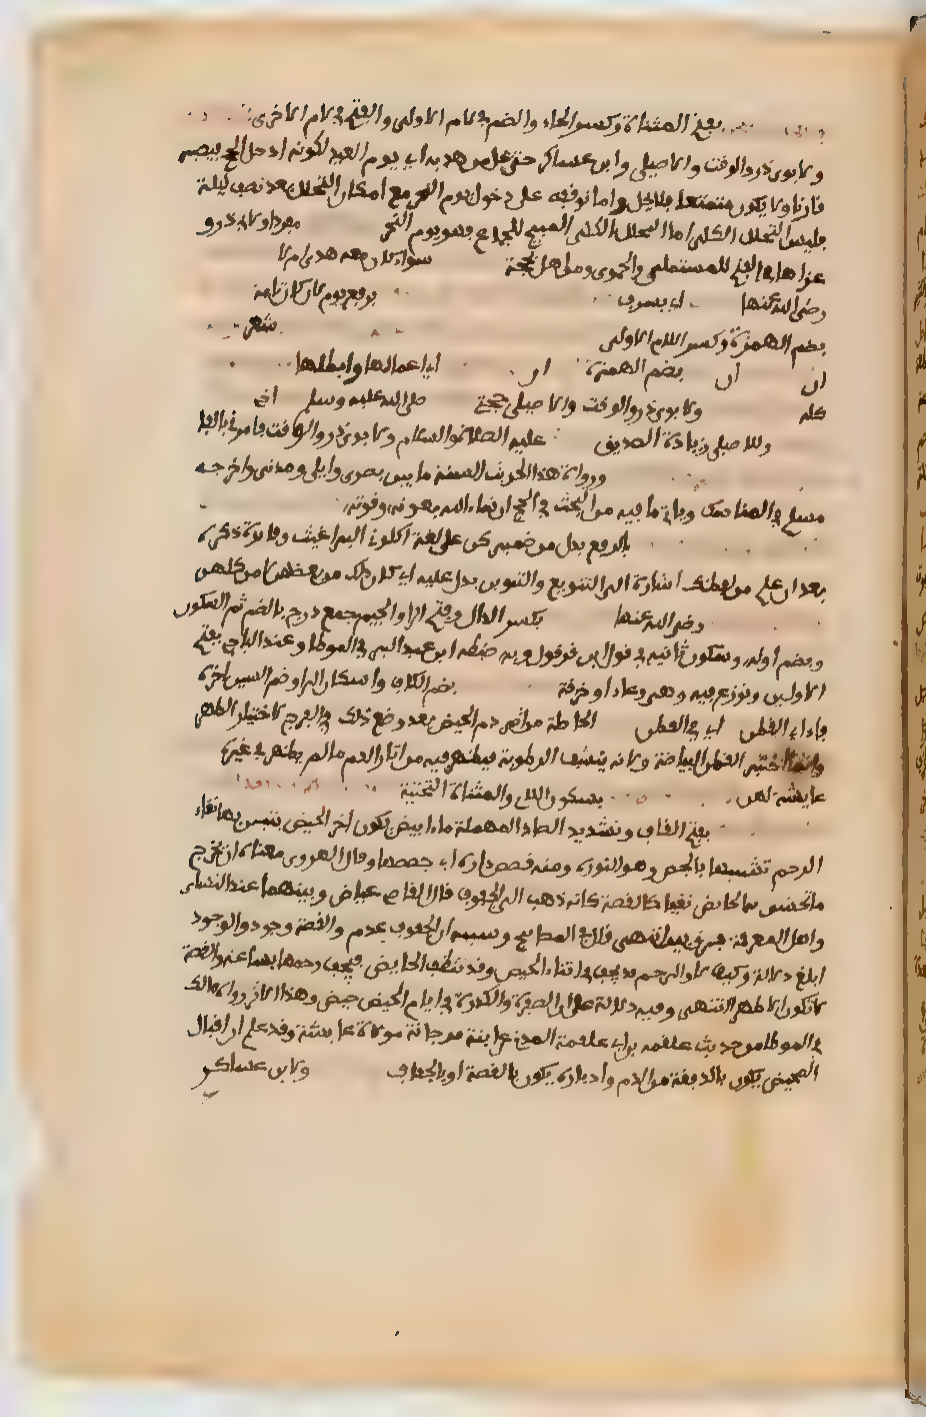 بفتح المثناة وكسر الحاء والضم في لام الاولى والفتح في لام الاخرى
ولابوي ذر والوقت والاصيلي وابن عساكر حتى يحل من هديه اي يوم العيد لكونه ادخل الحج فيصير
قارنا ولا يكون متمتعا بلا حل واما توقفه على دخول يوم النحر مع امكان التحلل بعد نصف ليلة
فليس التحلل الكلي اما التحلل الكلي المبيح للجماع فهو يوم النحر مفردا ولابي ذر و
عزاها في الفتح للمستملي والحموي ومن اهل بحجة سواء كان معه هدي ام لا
رضي الله عنها اي بسرف برفع يوم لان كان تامة
بضم الهمزة وكسر اللام الاولى شعر
ان ان بضم الهمزة اي اعمالها وابطلها
كله ولابوي ذر والوقت والاصيلي حجتي صلى الله عليه وسلم
وللاصيلي زيادة الصديق عليه الصلاة والسلام ولابوي ذر والوقت فامرني بالفا
ورواة هذا الحديث الستة ما بين بصري وايلي ومدني واخرجه
مسلم في المناسك وياتي ما فيه من البحث في الحج ان شاء الله بعونه وقوته
بالرفع بدل من ضمير كن على لغة اكلوني البراغيث وفائدة ذكره
بعد ان علم من لفظ كن اشارة الى التنويع والتنوين يدل عليه اي كان ذلك من بعضهن لا من كلهن
رضي الله عنها بكسر الدال وفتح الرا والجيم جمع درج بالضم ثم السكون
وبضم اوله وسكون ثانيه في قول ابن قرقول وبه ضبطه ابن عبد البر في الموطا وعند الباجي بفتح
الاولين ونوزع فيه وهي وعاء او خرقة بضم الكاف واسكان الرا وضم السين اخره
فاء اي القطن اي في القطن الحاصلة من اثر دم الحيض بعد وضع ذلك في الفرج لاختبار الطهر
وانما اختير القطن لبياضه ولانه ينشف الرطوبة فيظهر فيه من اثار الدم ما لم يظهر في غيره
عايشة لهن بسكون اللام والمثناة التحتية
بفتح القاف وتشديد الصاد المهملة ماء ابيض يكون اخر الحيض يتبين بها نقاء
الرحم تشبيها بالجص وهو النورة ومنه قصص داره اي جصصها وقال الهروي معناه ان يخرج
ما تحتشي به الحائض نقيا كالقصة كانه ذهب الى الجفوف قال القاضي عياض وبينهما عند النساء
واهل المعرفة فرق بين انتهى قال في المصابيح وسببه ان الجفوف عدم والقصة وجود والوجود
ابلغ دلالة وكيف لا والرحم قد يجف في اثناء الحيض وقد تنظف الحائض فيجف رحمها ساعة والقصة
لا تكون الا طهرا انتهى وفيه دلالة على ان الصفرة والكدرة في ايام الحيض حيض وهذا الاثر رواه مالك
في الموطا من حديث علقمة بن ابي علقمة المدني عن امه مرجانة مولاة عايشة وقد علم ان اقبال
المحيض يكون بالدفعة من الدم وادباره يكون بالقصة او بالجفاف ولابن عساكر